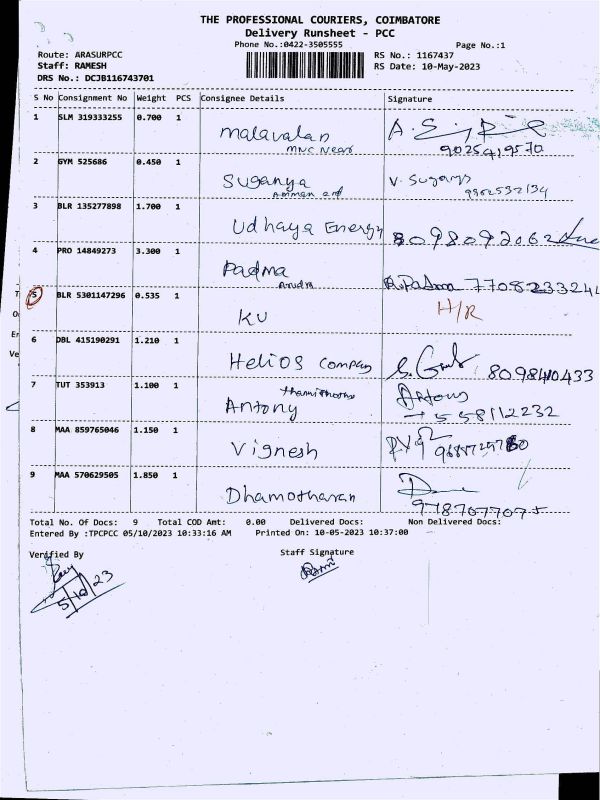 THE PROFESSIONAL COURIERS, COIMBATORE
Delivery Runsheet - PCC
Phone No.:0422-3505555
Page No.:1
Route: ARASURPCC
RS No.: 1167437
Staff: RAMESH
RS Date: 10-May-2023
DRS No.: DCJB116743701
S No Consignment No Weight PCS Consignee Details Signature
1 SLM 319333255 0.700 1 Malavalan
MNC Near
9025419570
2 GYM 525686 0.450 1 Suganya V. Suganya
9962532134
3 BLR 135277898 1.700 1 Udhaya Energy 8098092062
4 PRO 14849273 3.300 1 Padma R.Padma 7708233241
5 BLR 5301147296 0.535 1 KU H/R
6 DBL 415190291 1.210 1 Helios Company 8098410433
7 TUT 353913 1.100 1 Antony Antony
8 MAA 859765046 1.150 1 Vignesh
9 MAA 570629505 1.850 1 Dhamotharan
Total No. Of Docs: 9 Total COD Amt: 0.00 Delivered Docs: Non Delivered Docs:
Entered By :TPCPCC 05/10/2023 10:33:16 AM Printed On: 10-05-2023 10:37:00
Verified By Staff Signature
5/10/23